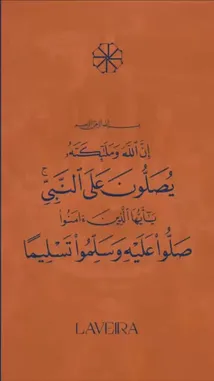 بسم الله الرحمن الرحيم
إِنَّ ٱللَّهَ وَمَلَٰٓئِكَتَهُۥ
يُصَلُّونَ عَلَى ٱلنَّبِىِّ ۚ
يَٰٓأَيُّهَا ٱلَّذِينَ ءَامَنُوا۟
صَلُّوا۟ عَلَيْهِ وَسَلِّمُوا۟ تَسْلِيمًا
LAVEIRA